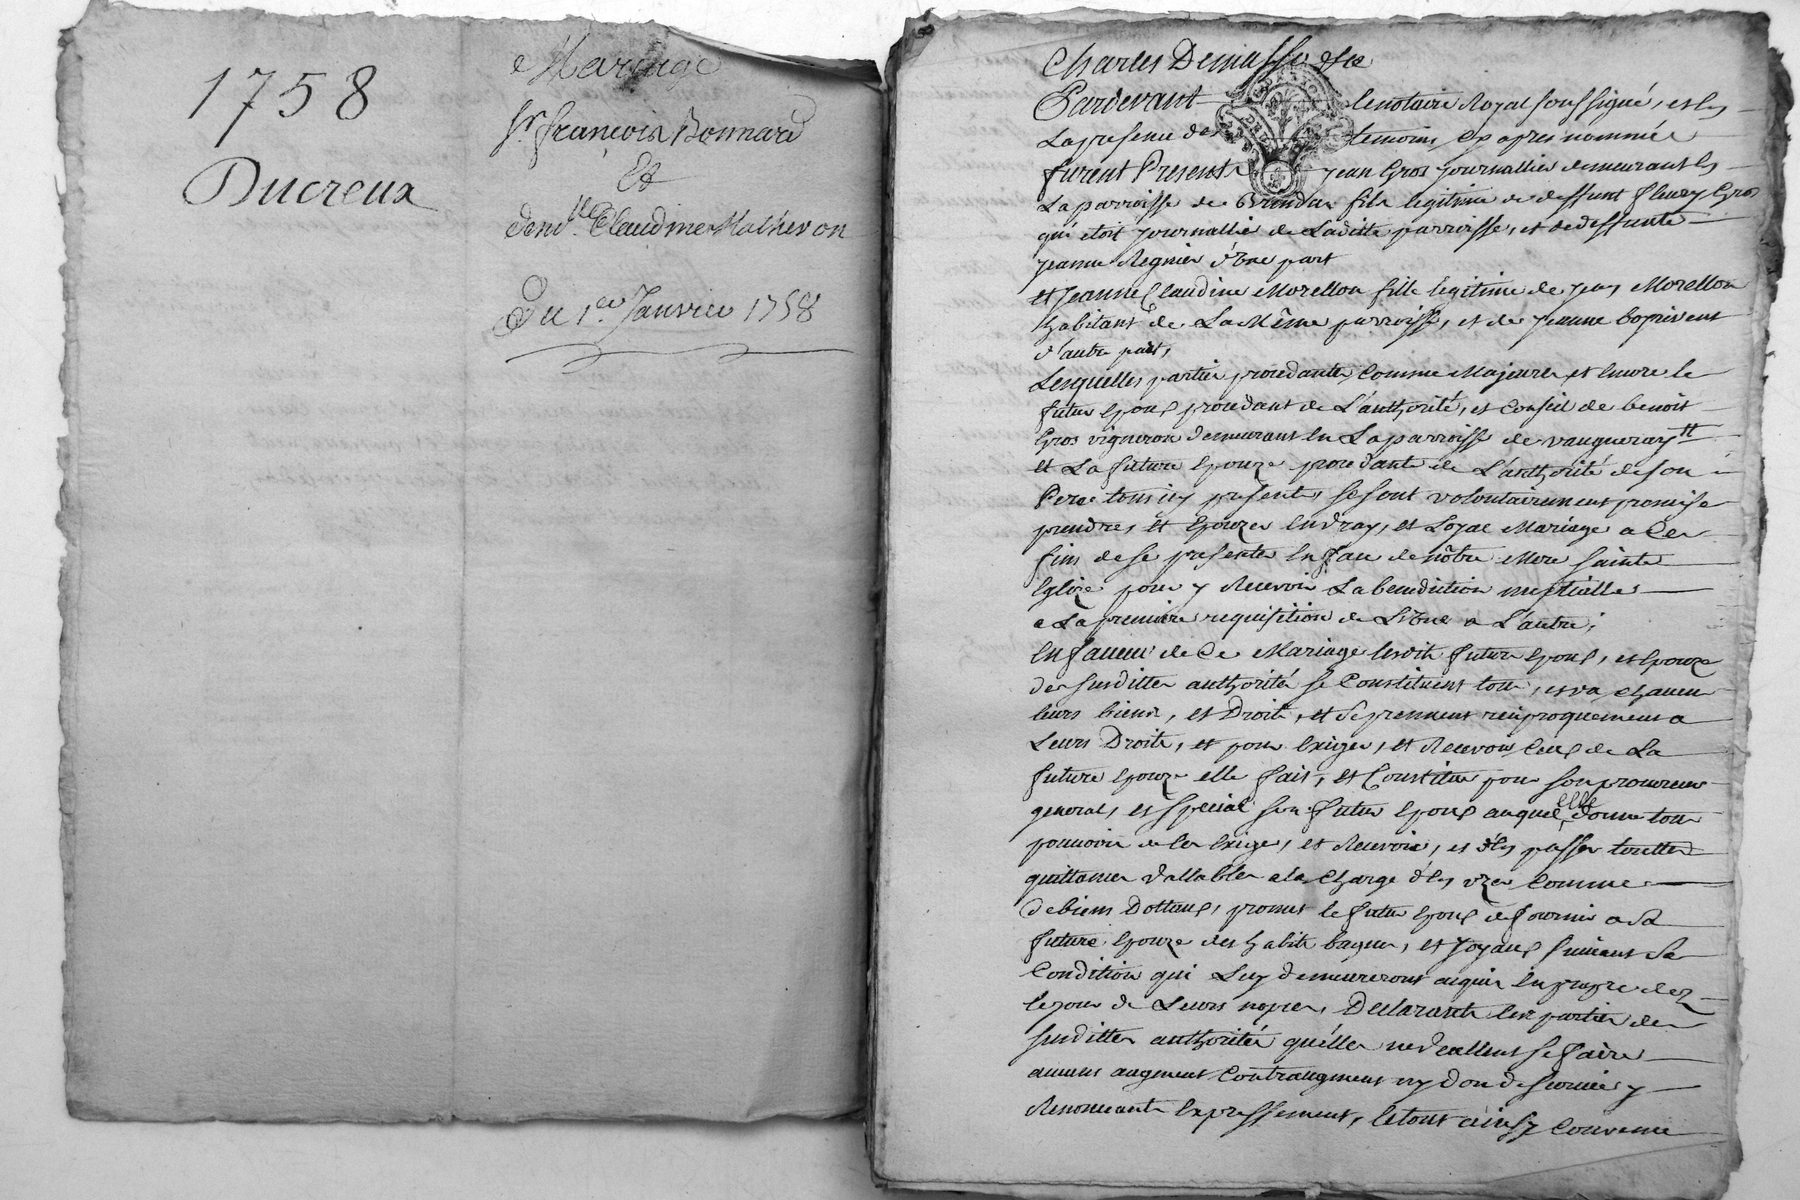 1758
Ducreux
Mariage
Sr. françois Bonnard
Et
demlle. Claudine Matheron
Du 1er. Janvier 1758
Pardevant le notaire Royal soussigné, et en
La presence des temoins cy apres nommés
furent Presents jean Gros journallier demeurant en
La parroisse de Brindas fils legitime de deffunt fleury Gros
qui etoit journallié de Laditte parroisse, et de deffunte
jeanne Regnier d'une part
et jeanne Claudine Morellon fille legitime de jean Morellon
habitant de La Même parroisse, et de jeanne
d'autre part,
Lesquelles parties procedantes comme Majeures et encore le
futur Epoux procedant de L'authorité, et Conseil de benoit
Gros vigneron demeurant en La parroisse de vaugneray
et La future Epouze procedante de L'authorité de son
Pere tous icy presents, se sont volontairement promis se
prendre, et Epouzer en vray, et Loyal Mariage a Ces
fins de se presenter en face de nôtre Mere Sainte
Eglize pour y Recevoir La benediction nuptialle
a La premiere requisition de L'Une a L'autre;
En faveur de Ce Mariage Lesdits futurs Epoux, et Epouze
des susdittes authorités se Constituent tous, et un chacun
leurs biens, et Droits, et Se prennent reciproquement a
Leurs Droits, et pour Exiger, et Recevoir Ceux de La
future Epouze elle fait, et Constitue pour son procureur
general, et special son futur Epoux auquel elle donne tout
pouvoir de les Exiger, et Recevoir, et d'En passer touttes
quittances Vallables a la Charge d'En Uzer Comme
de biens Dottaux, promet le futur Epoux de fournir a Sa
future Epouze des habits bagues, et Joyaux suivant Sa
Condition qui Luy demeureront acquis En propre dez
le jour de Leurs nopces, Declarants les parties des
susdittes authorités qu'elles ne veullent se faire
aucuns augment Contraugment ny don de survie y
Renonceants Expressement, le tout ainsy Convenu